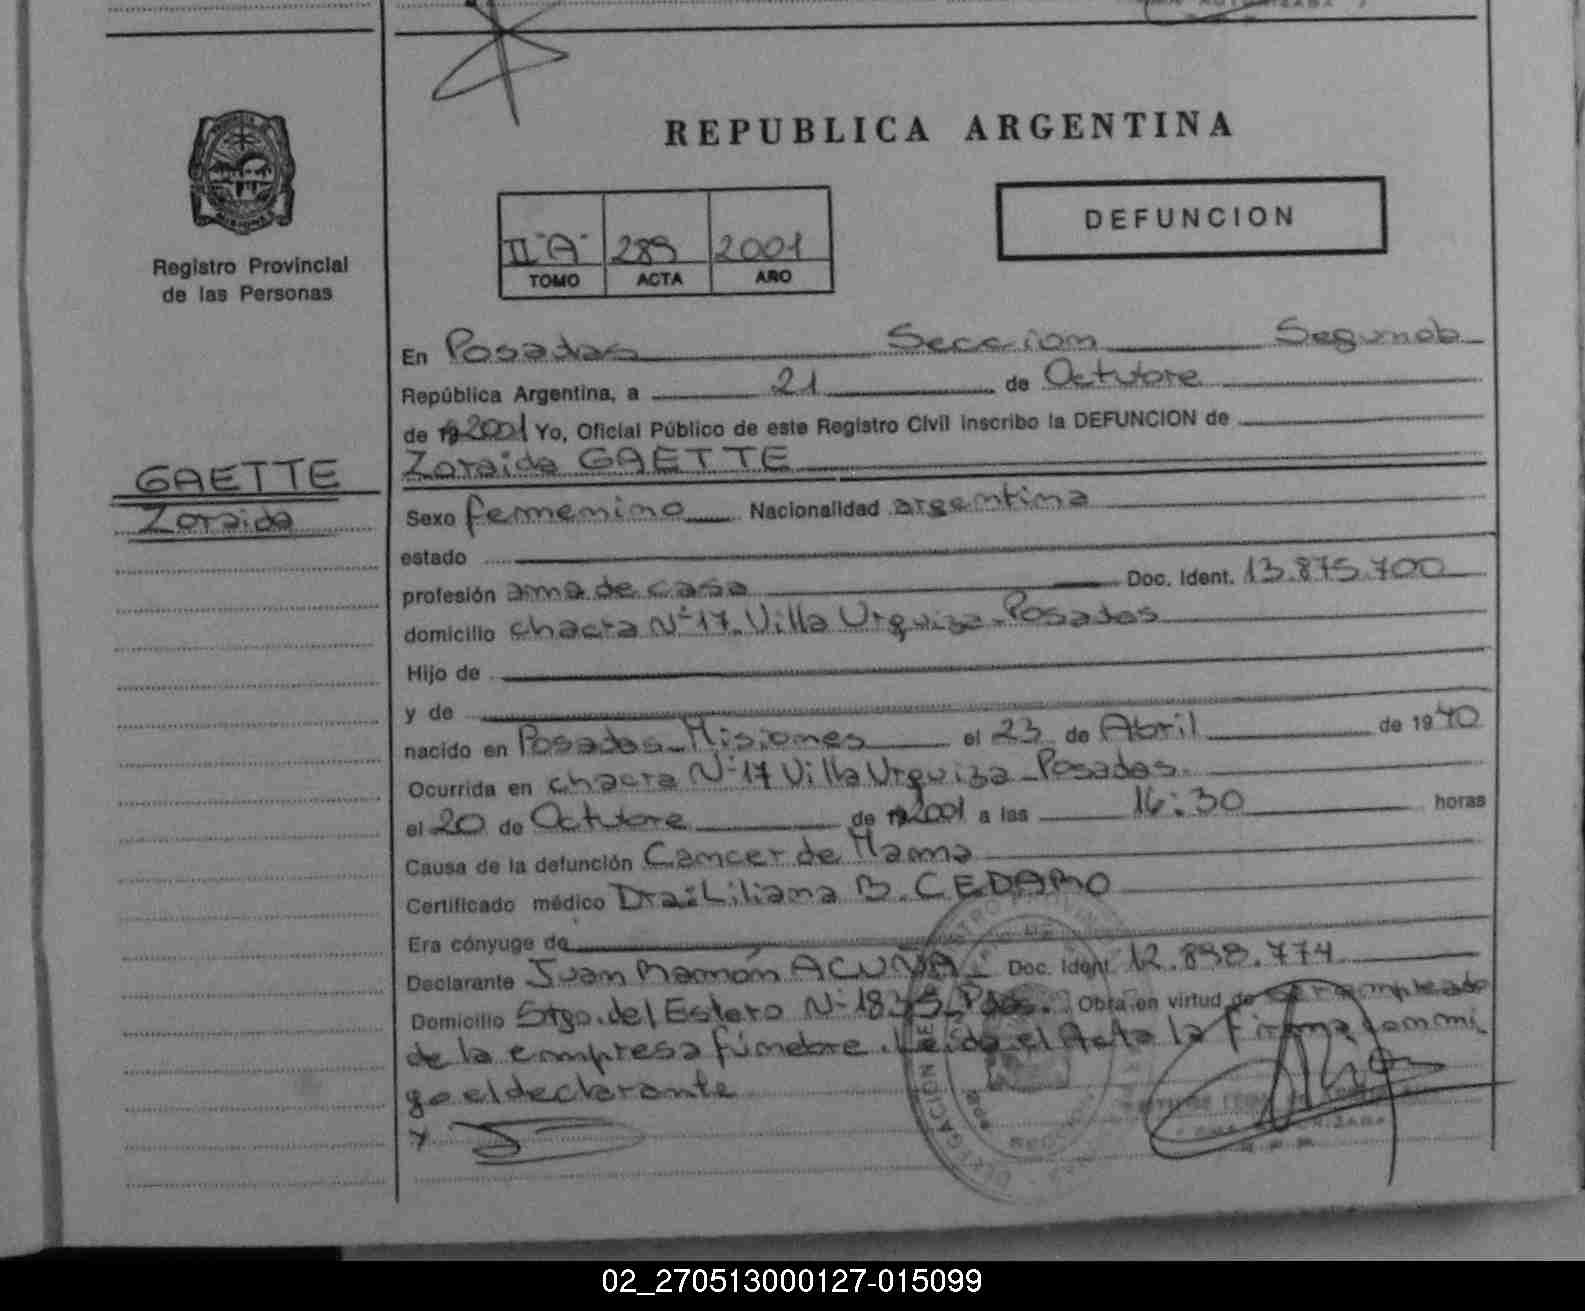 REPUBLICA ARGENTINA
Registro Provincial
de las Personas
II "A" 289 2001
TOMO ACTA AÑO
DEFUNCION
En Posadas Seccion Segunda
República Argentina, a 21 de Octubre
de 2001 Yo, Oficial Público de este Registro Civil inscribo la DEFUNCION de
Zoraida GAETTE
GAETTE
Zoraida
Sexo femenino Nacionalidad argentina
estado
profesión ama de casa Doc. Ident. 13.875.700
domicilio chacra Nº 17. Villa Urquiza - Posadas
Hijo de
y de
nacido en Posadas - Misiones el 23 de Abril de 1940
Ocurrida en chacra Nº 17 Villa Urquiza - Posadas.
el 20 de Octubre de 2001 a las 16:30 horas
Causa de la defunción Cancer de Mama
Certificado médico Dra: Liliana B. CEDARO
Era cónyuge de
Declarante Juan Ramón ACUÑA. Doc. Ident. 12.898.774
Domicilio Stgo. del Estero Nº 1835 - Pdas. Obra en virtud de ser empleado
de la empresa fúnebre. Leida el Acta la firma conmi
go el declarante
x
02_270513000127-015099